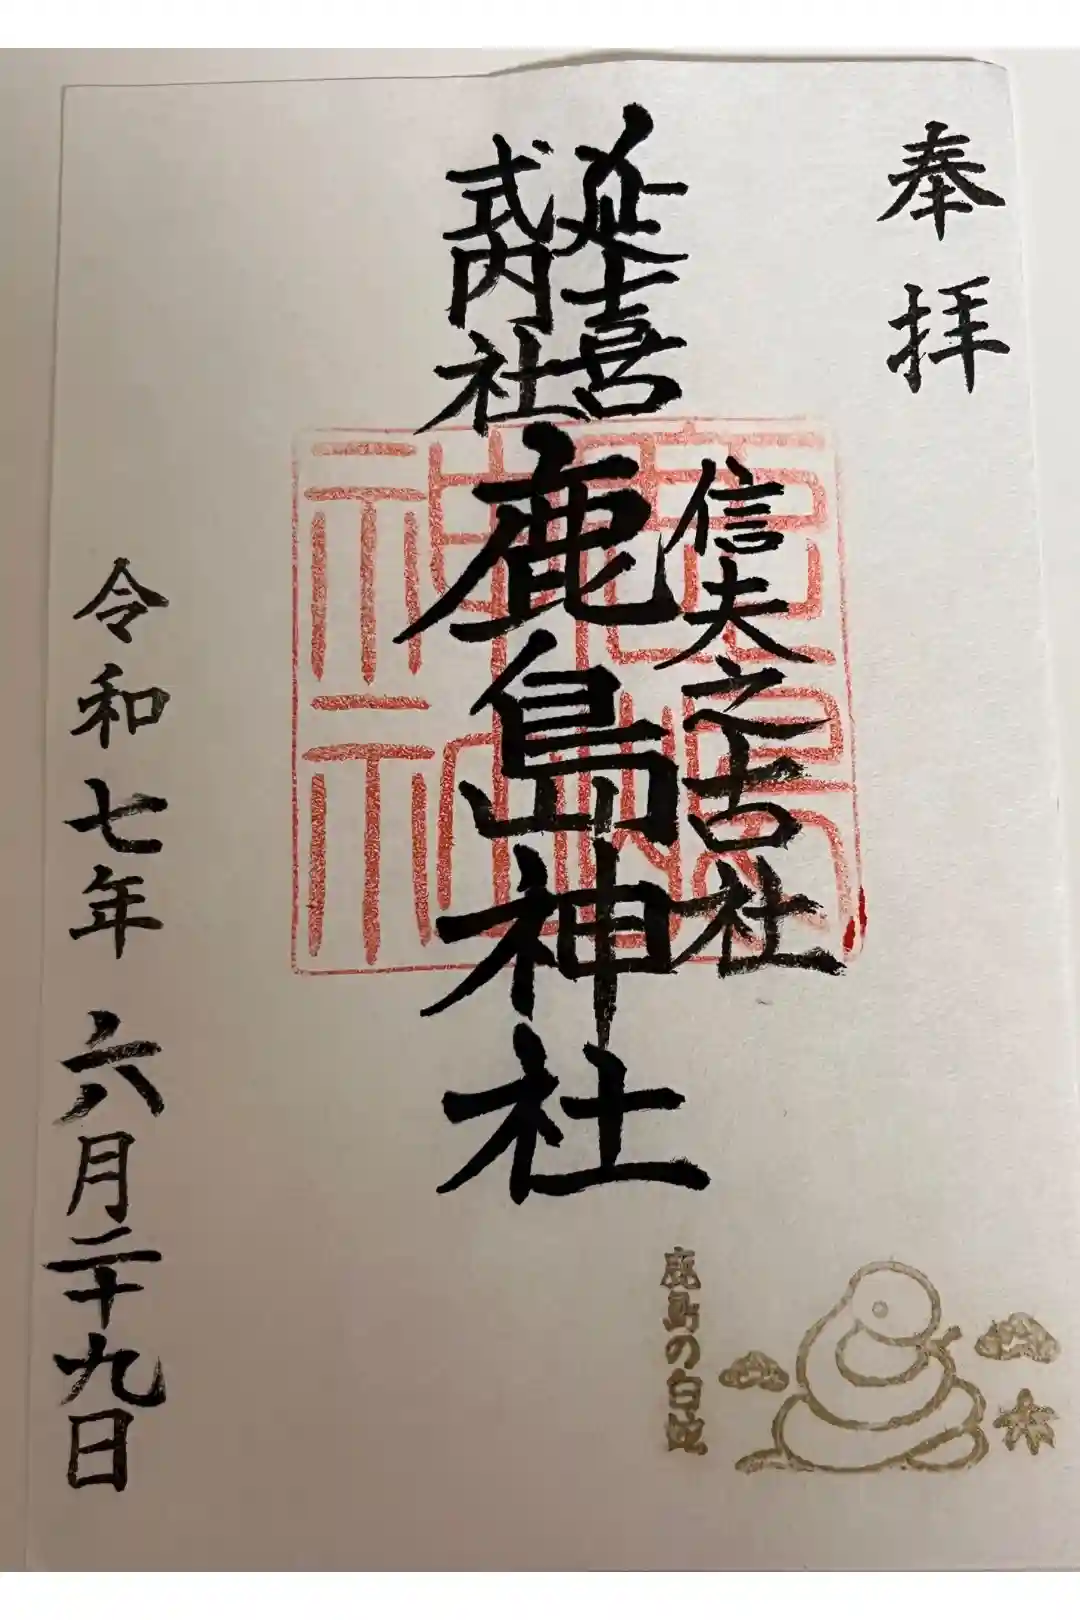 奉拝
延喜
式内社
信夫之古社
鹿島神社
令和七年 六月二十九日
鹿島の白蛇